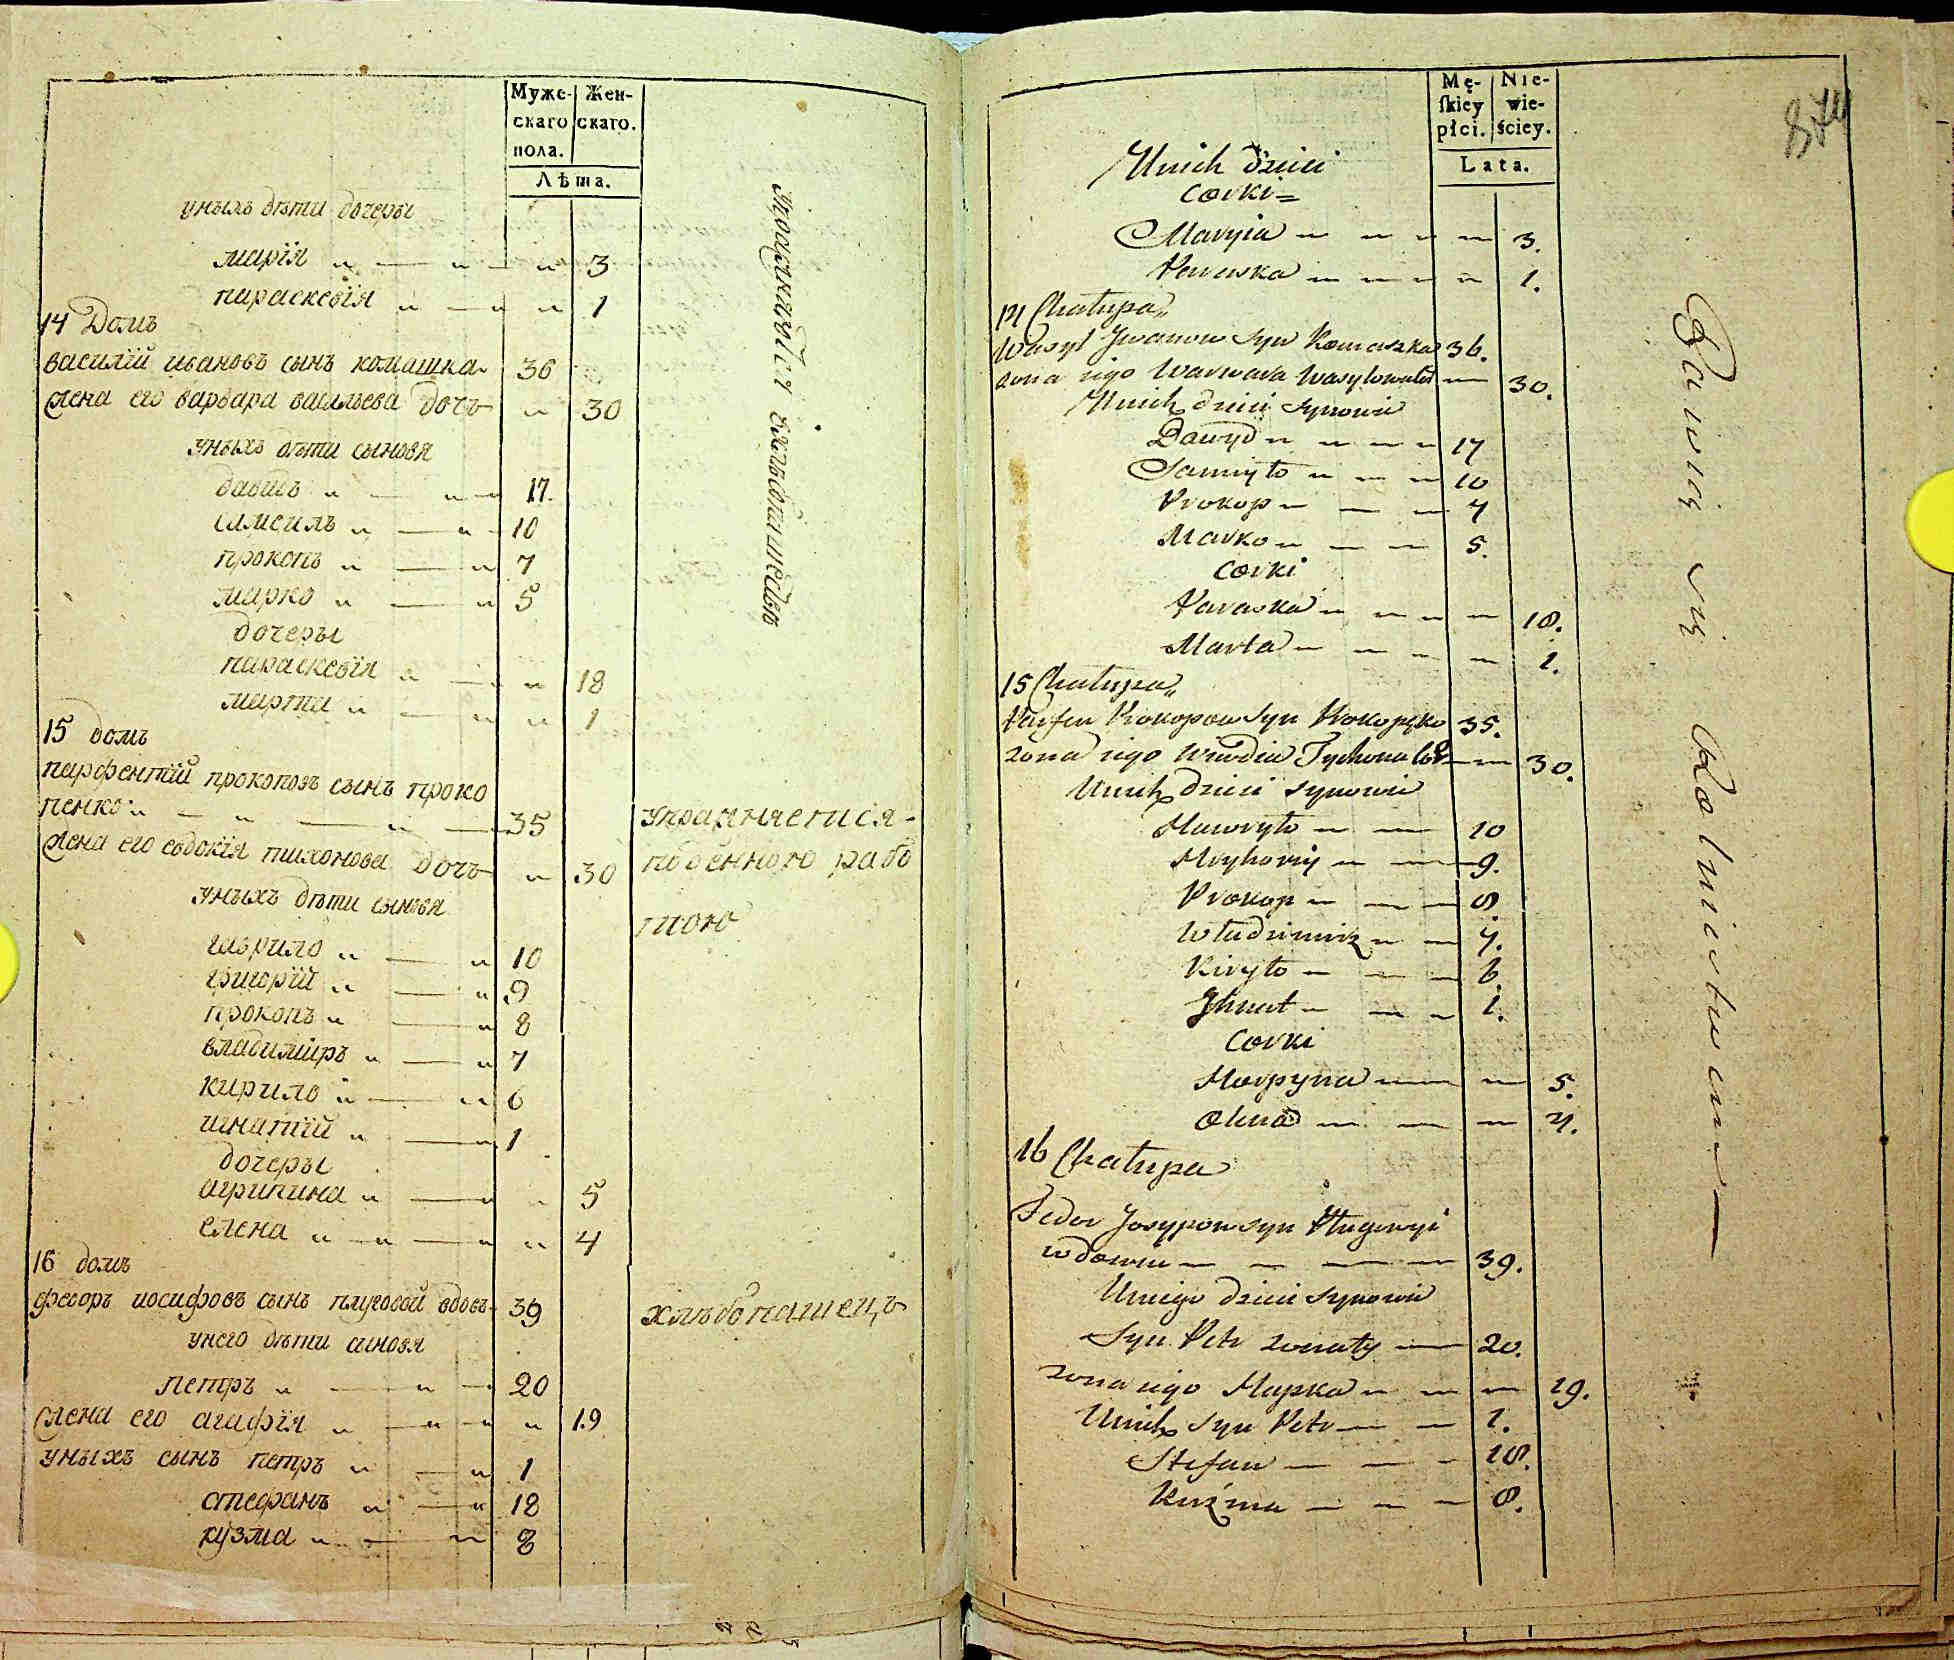 Муже- Жен-
скаго скаго.
пола.
Лѣта.
уныхъ дѣти дочеры
марїя 3
параскевїя 1
14 Домъ
василїй ивановъ сынъ комашка 36
жена его варвара васильева дочъ 30
уныхъ дѣти сыновя
давидъ 17.
самоилъ 10
прокопъ 7
марко 5
дочеры
параскевїя 18
марта 1
15 домъ
парфентїй прокоповъ сынъ проко
пенко 35
жена его евдокїя тихонова дочъ 30
уныхъ дѣти сыновя
гаврило 10
григорїй 9
прокопъ 8
владимїръ 7
кирило 6
игнатїй 1
дочеры
агрипина 5
елена 4
16 домъ
феодръ иосифовъ сынъ плуговой вдовъ 39
унего дѣти синовя
петръ 20
жена его агафїя 19
уныхъ сынъ петръ 1
стефанъ 18
кузма 8
упражняется
поденною рабо
тою
хлѣбопашецъ
874
Mę- Nie-
skiey wie-
płci. ściey.
Lata.
Unich dzieci
Corki
Maryia 3.
Paraska 1.
14 Chałupa
Wasyl Jwanow Syn Komaszka 36.
żona iego Warwara Wasylowa 30.
Unich dzieci Synowie
Dawyd 17
Samuyło 10
Prokop 7
Marko 5.
Corki
Paraska 18.
Marta 1.
15 Chałupa
Parfen Prokopow Syn Prokopęko 35.
żona iego Wiwdia Tychona Cór 30.
Unich dzieci Synowie
Hawryło 10
Hryhoriy 9.
Prokop 8.
Władzimirz 7.
Kiryło 6.
Jhnat 1.
Corki
Horpyna 5.
Olena 4.
16 Chałupa
Fedor Josypow Syn Pługowyi
wdowiec 39.
Uniego dzieci Synowie
Syn Petr żonaty 20.
żona iego Hapka 19.
Unich Syn Petr 1.
Stefan 18.
Kuźma 8.
Bawią się Rolnictwem